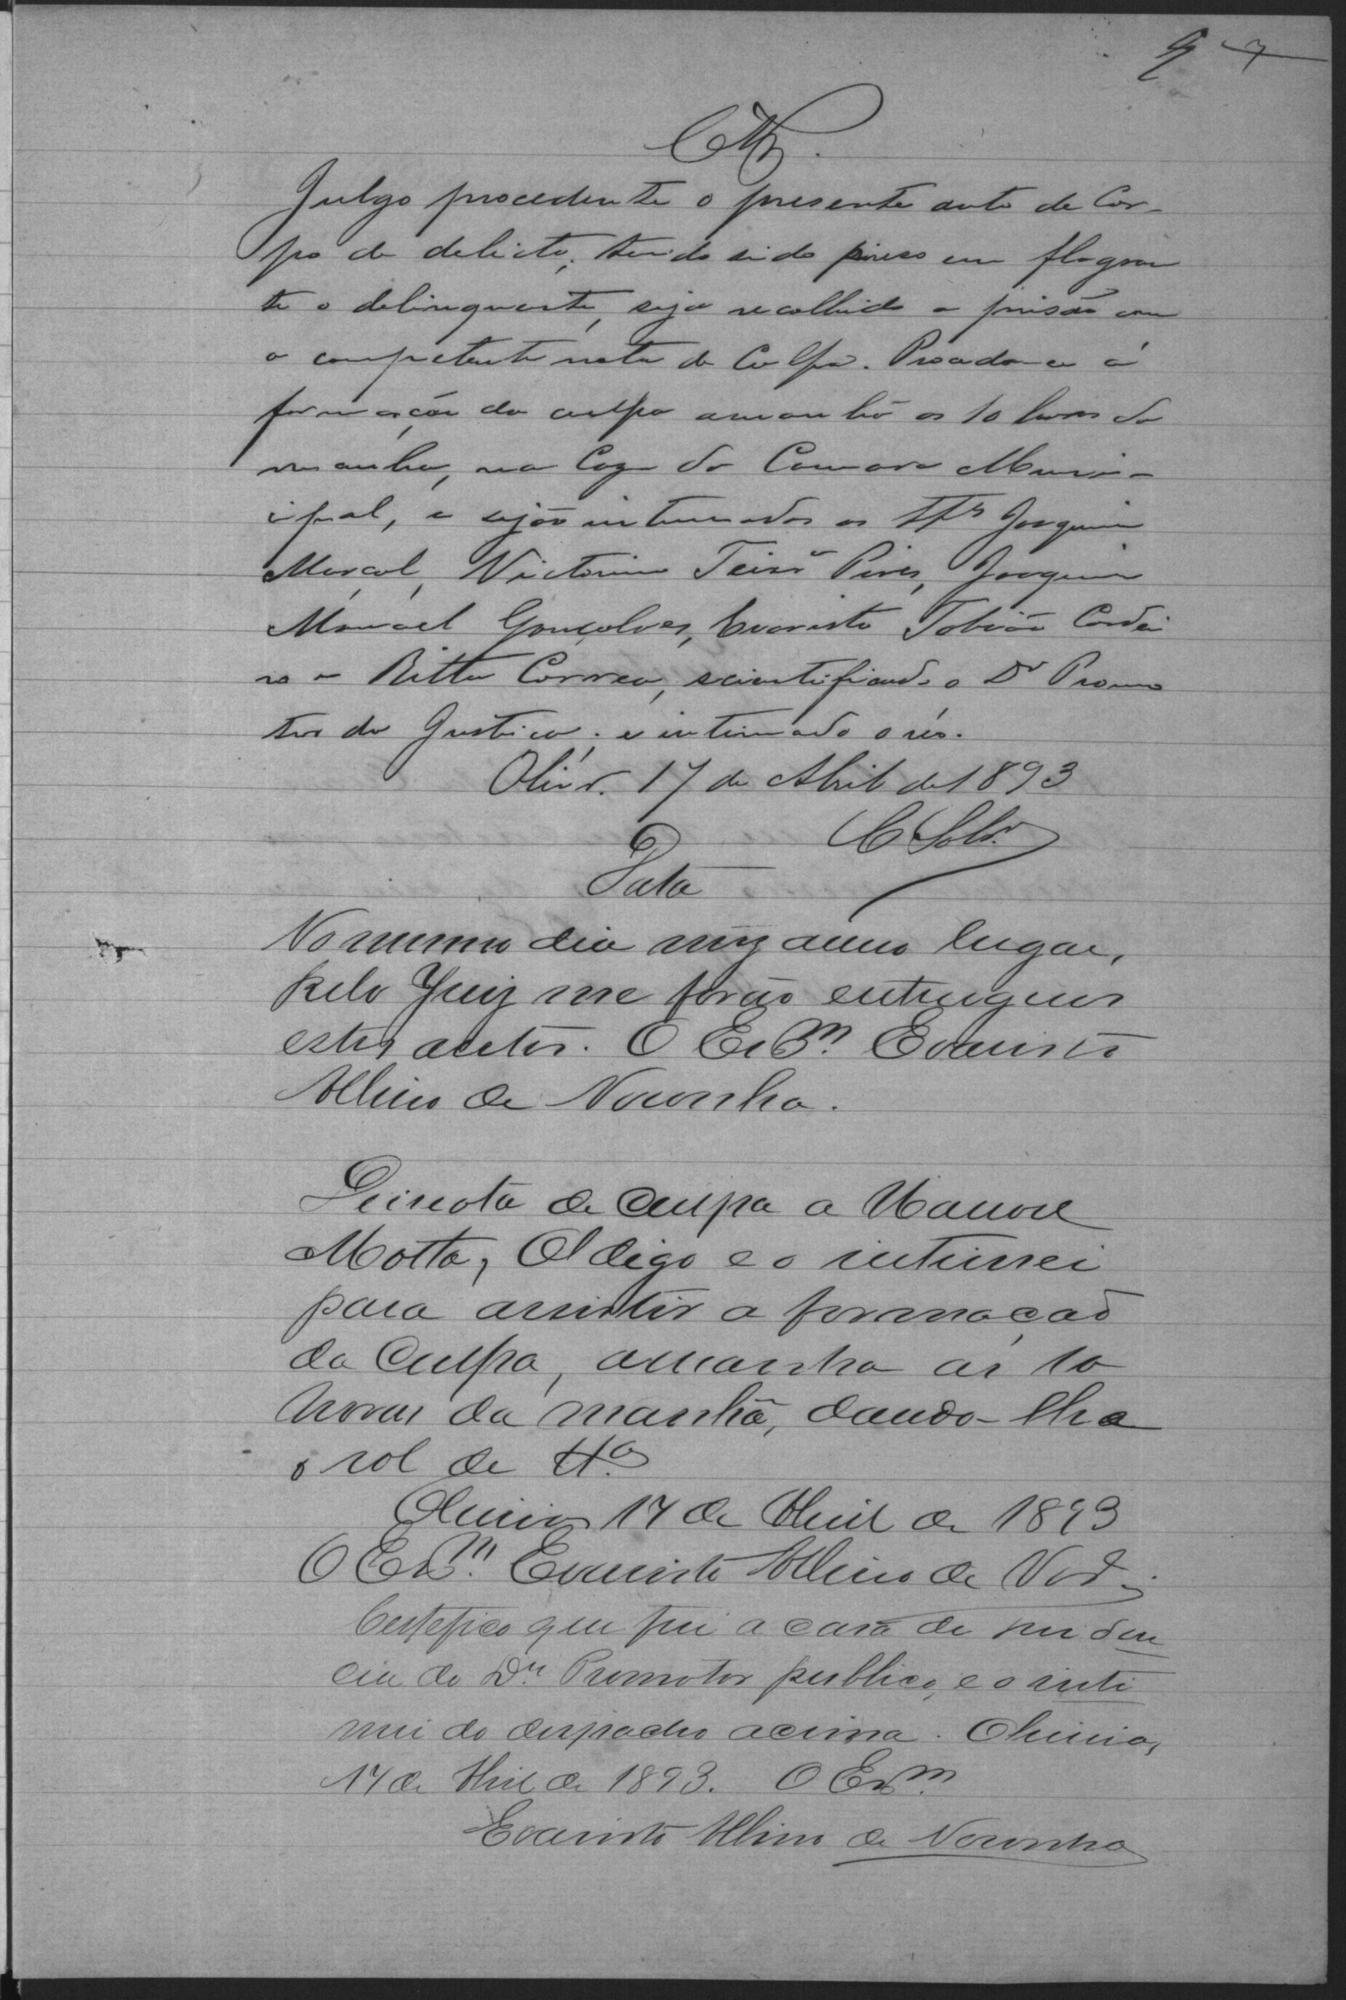 7
Julgo procedente o presente auto de Cor-
po de delicto, tendo sido preso em flagran
te o delinquente, seja recolhido a prisão com
a competente nota de Culpa. Proceda-se á
formação da culpa amanhã as 10 horas da
manhã, na Caza da Camara Muni-
cipal, e sejão intimados as Tas Joaquim
Marçal, Victorino Teixrª Pires, Joaquim
Manoel Gonçalves, Evaristo Tobias Cordei
ro e Ritta Correa, scientificando o Dr Promo
tor da Justiça, e intimado o réo.
Olivrª. 17 de Abril de 1893
Data
No mesmo dia mez anno lugar,
pelo Juiz me forão entregues
estes autos. O Escrm. Evaristo
Albino de Noronha.
Dei nota de culpa a Manoel
Motta, O digo e o intimei
para assistir a formação
da Culpa, amanha as 10
horas da manhã, dando-lhe
o rol de ttas
Oliveira 17 de Abril de 1893
O Escrm. Evaristo Albino de Nora
Certefico que fui a casa de residen
cia do Dr. Promotor publico, e o inti
mei do despacho acima. Oliveira,
17 de Abril de 1893. O Escrm.
Evaristo Albino de Noronha